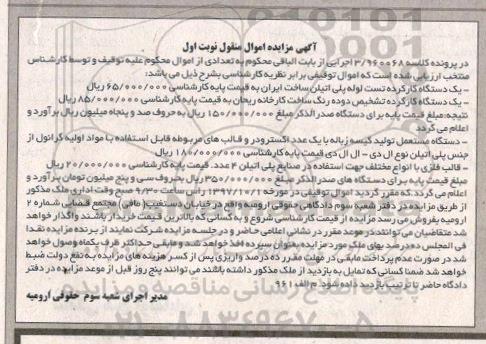 آگهی مزایده اموال منقول نوبت اول
در پرونده کلاسه ۳/۹۶۰۰۶۸ اجرایی از بابت الباقی محکوم به تعدادی از اموال محکوم علیه توقیف و توسط کارشناس
منتخب ارزیابی شده است که اموال توقیفی برابر نظریه کارشناسی بشرح ذیل می باشد:
- یک دستگاه کارکرده تست لوله پلی اتیلن ساخت ایران به قیمت پایه کارشناسی ۶۵/۰۰۰/۰۰۰ ریال
- یک دستگاه کارکرده تشخیص دوده رنگ ساخت کارخانه ریحان به قیمت پایه کارشناسی ۸۵/۰۰۰/۰۰۰ ریال
نتیجه: مبلغ قیمت پایه برای دستگاه صدر الذکر مبلغ ۱۵۰/۰۰۰/۰۰۰ ریال به حروف صد و پنجاه میلیون ریال برآورد و
اعلام می گردد
- دستگاه مستعمل تولید کیسه زباله با یک عدد اکسترودر و قالب های مربوطه قابل استفاده با مواد اولیه گرانول از
جنس پلی اتیلن نوع ال دی - ال ال دی قیمت پایه کارشناسی ۱۸۰/۰۰۰/۰۰۰ ریال
- قالب فلزی با انواع مختلف جهت استفاده در صنایع پلی اتیلن ۴ عدد. قیمت پایه کارشناسی ۲۰/۰۰۰/۰۰۰ ریال
مبلغ قیمت پایه برای دستگاه های صدر الذکر مبلغ ۳۵۰/۰۰۰/۰۰۰ ریال بحروف سی و پنج میلیون تومان برآورد و
اعلام می گردد. که مقرر گردید اموال توقیفی در مورخه ۱۳۹۷/۱۰/۱ راس ساعت ۹/۳۰ صبح وقت اداری ملک مذکور
از طریق مزایده در دفتر شعبه سوم دادگاهی حقوقی ارومیه واقع در خیابان دستغیب (مافی) مجتمع قضایی شماره ۲
ارومیه بفروش می رسد مزایده از قیمت کارشناسی شروع و به کسانی که بالاترین قیمت خریدار باشند واگذار خواهد
شد متقاضیان می توانند در موعد مقرر در نشانی اعلامی حاضر و در جلسه مزایده شرکت نمایند از برنده مزایده نقدا
فی المجلس ده درصد بهای ملک مورد مزایده بعنوان سپرده اخذ خواهد شد و مابقی حداکثر ظرف یکماه وصول خواهد
شد در صورت عدم پرداخت مابقی در مهلت مقرر ده درصد واریزی پس از کسر هزینه های مزایده به نفع دولت ضبط
خواهد شد ضمنا کسانی که تمایل به بازدید از ملک مذکور داشته باشند می توانند پنج روز قبل از موعد مزایده در دفتر
دادگاه حاضر تا ترتیب بازدید داده شود. م الف ۹۶۱
مدیر اجرای شعبه سوم حقوقی ارومیه
پایگاه اطلاع رسانی مناقصه و مزایده